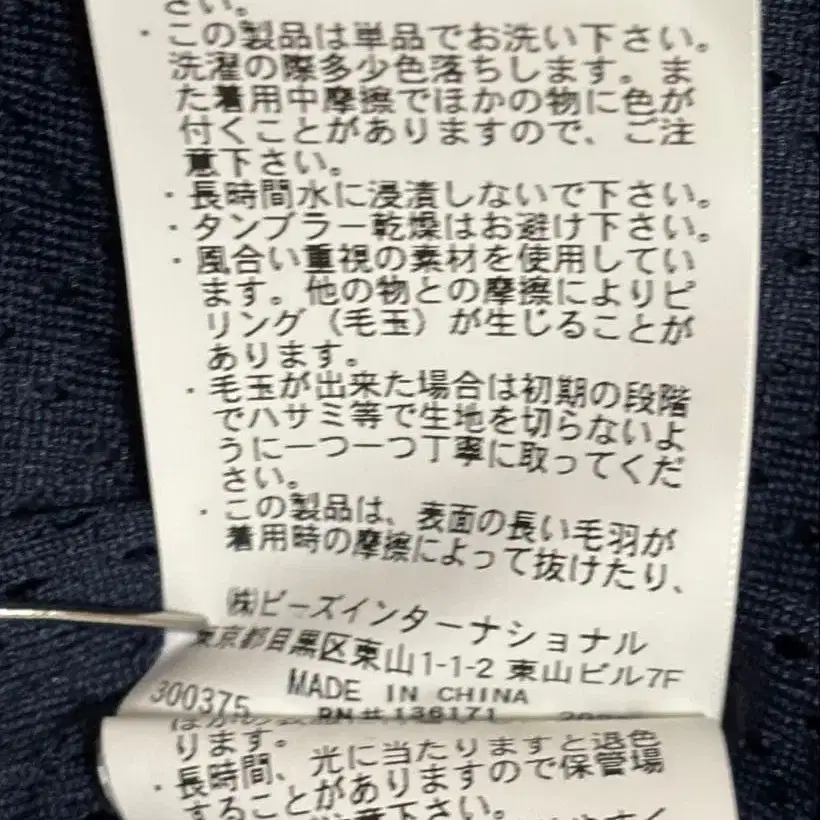 さい。
・この製品は単品でお洗い下さい。
洗濯の際多少色落ちします。ま
た着用中摩擦でほかの物に色が
付くことがありますので、ご注
意下さい。
・長時間水に浸漬しないで下さい。
・タンブラー乾燥はお避け下さい。
・風合い重視の素材を使用してい
ます。他の物との摩擦によりピ
リング（毛玉）が生じることが
あります。
・毛玉が出来た場合は初期の段階
でハサミ等で生地を切らないよ
うに一つ一つ丁寧に取ってくだ
さい。
・この製品は、表面の長い毛羽が
着用時の摩擦によって抜けたり、
㈱ビーズインターナショナル
東京都目黒区東山1-1-2 東山ビル7F
MADE IN CHINA
300375
RN# 136171
ります。
・長時間、光に当たりますと退色
することがありますので保管場
意下さい。